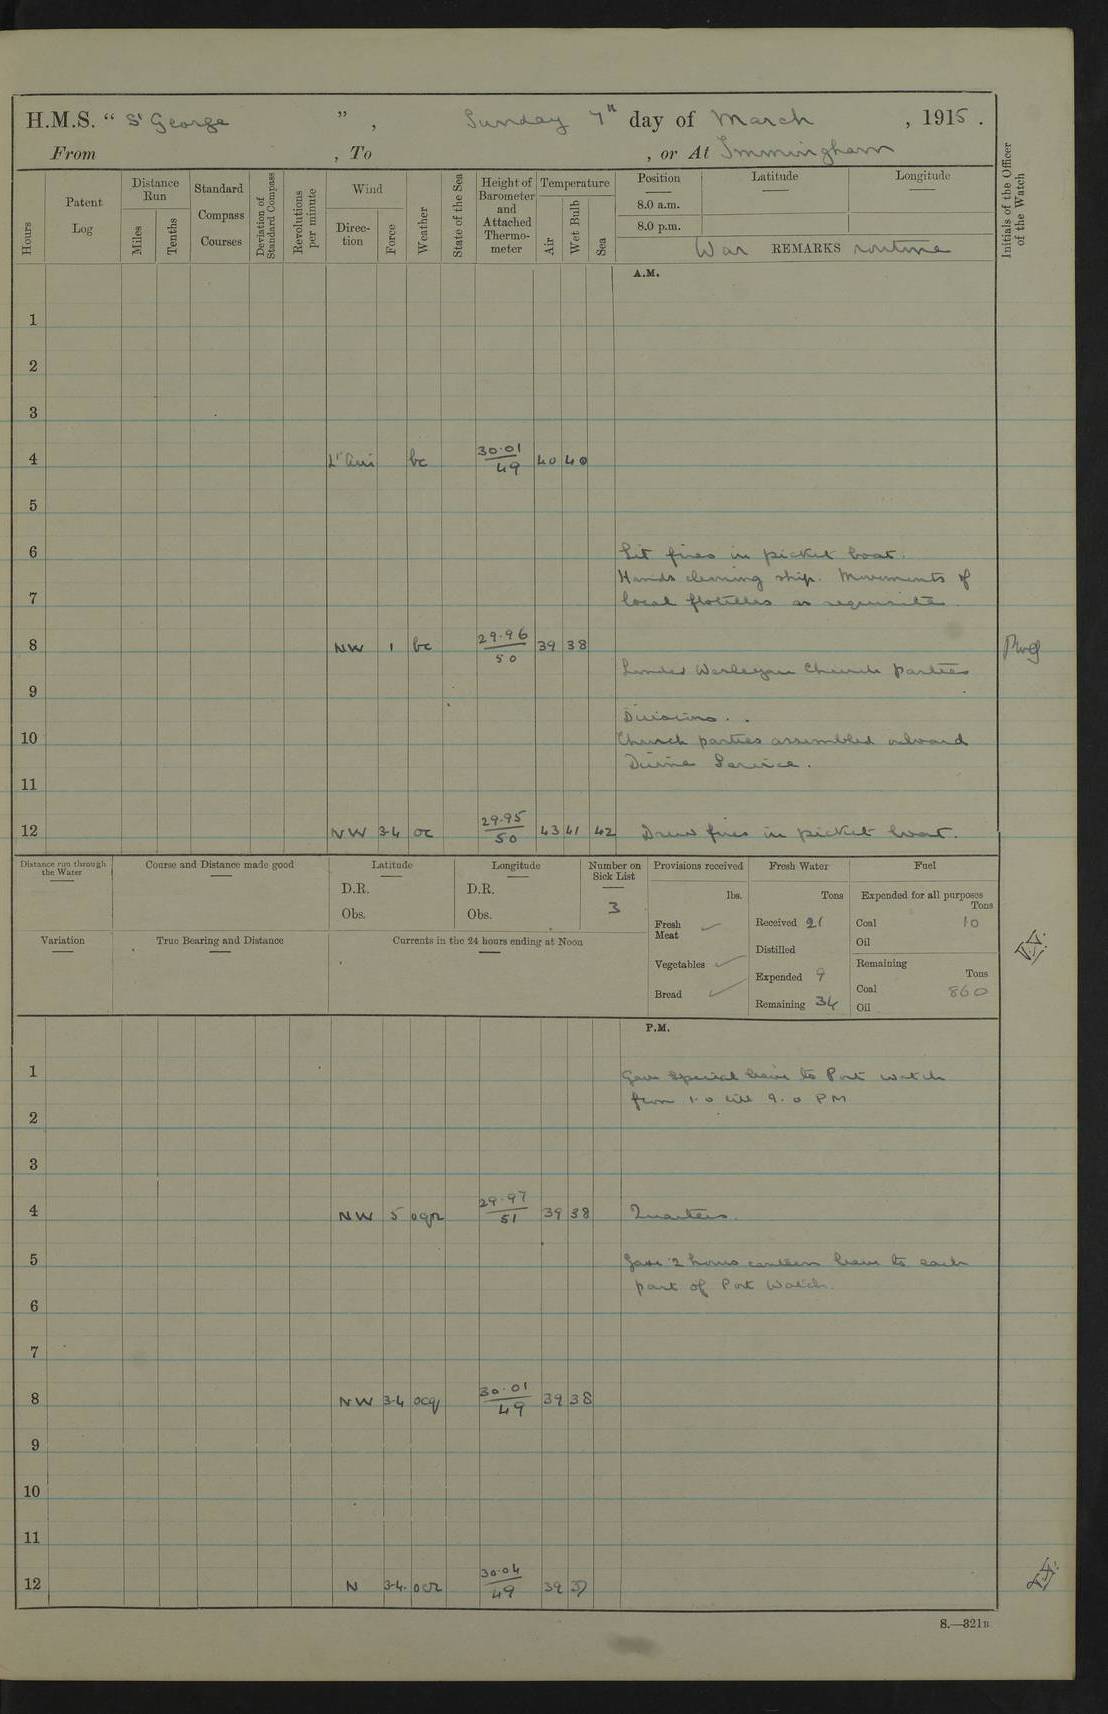 H.M.S. " St George ", Sunday 7th day of March , 1915 .
From , To , or At Immingham
Hours
Patent Log
Distance Run
Miles
Tenths
Standard Compass Courses
Deviation of Standard Compass
Revolutions per minute
Wind
Direction
Force
Weather
State of the Sea
Height of Barometer and Attached Thermometer
Temperature
Air
Wet Bulb
Sea
Position
8.0 a.m.
8.0 p.m.
Latitude
Longitude
War REMARKS routine
Initials of the Officer of the Watch
A.M.
1
2
3
4 Lt airs bc 30.01/49 40 40
5
6 Lit fires in picket boat.
Hands cleaning ship. Movements of
7 local flotillas as requisite.
8 NW 1 bc 29.96/50 39 38
Landed Wesleyan Church parties
9
Divisions.
10 Church parties assembled onboard
Divine Service.
11
12 NW 3-4 oc 29.95/50 43 41 42 Drew fires in picket boat.
Distance run through the Water
Course and Distance made good
Latitude
D.R.
Obs.
Longitude
D.R.
Obs.
Number on Sick List
3
Provisions received
lbs.
Fresh Meat
Vegetables
Bread
Fresh Water
Tons
Received 21
Distilled
Expended 9
Remaining 34
Fuel
Expended for all purposes
Tons
Coal 10
Oil
Remaining
Tons
Coal 860
Oil
Variation
True Bearing and Distance
Currents in the 24 hours ending at Noon
P.M.
1 Gave special leave to Port watch
from 1.0 till 9.0 PM
2
3
4 NW 5 oqr 29.97/51 39 38 Quarters.
5 Gave 2 hours canteen leave to each
part of Port Watch.
6
7
8 NW 3-4 ocq 30.01/49 39 38
9
10
11
12 N 3-4 ocr 30.04/49 39 37
S.—321B